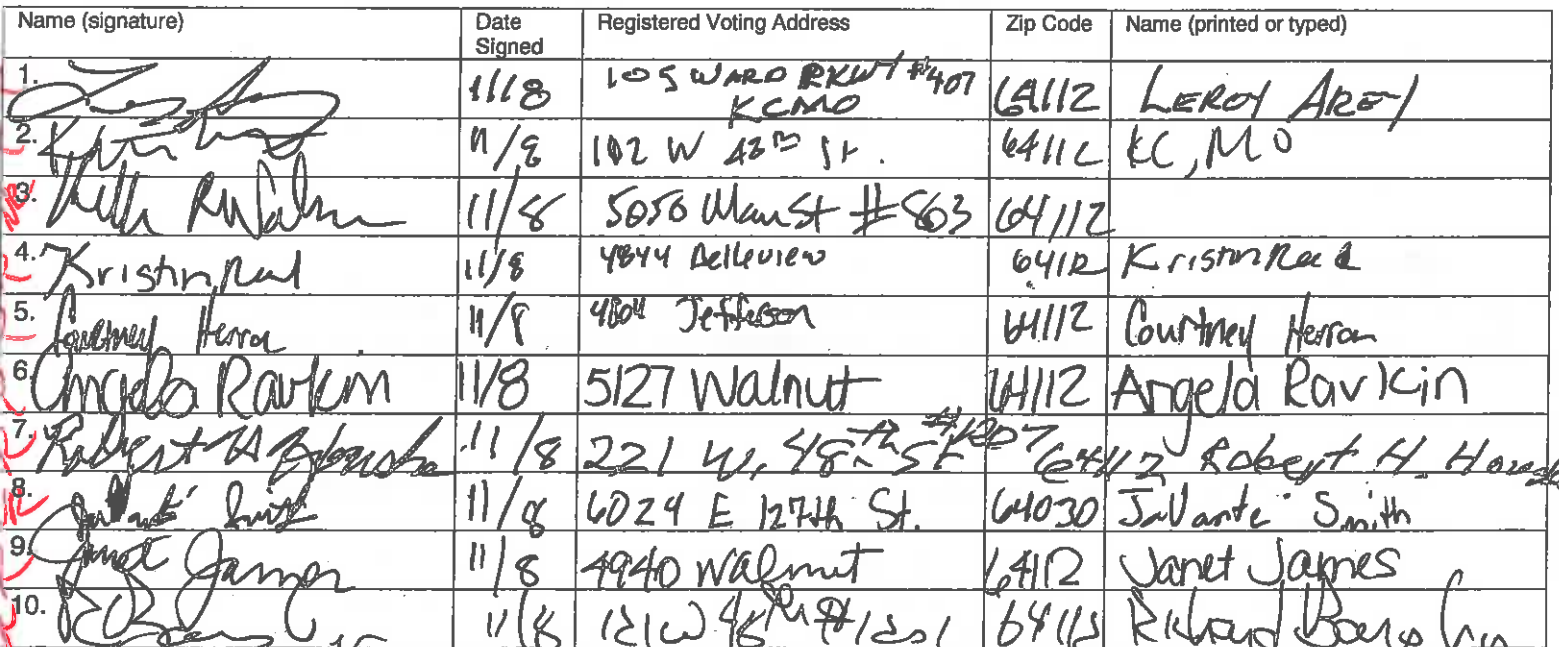 Name (signature) Date Signed Registered Voting Address Zip Code Name (printed or typed)
1. 11/8 105 WARD PKWY #407 KCMO 64112 LEROY AREY
2. 11/8 102 W 48th St. 64112 KC, MO
3. 11/8 5050 Main St #803 64112
4. Kristin Read 11/8 4844 Belleview 64112 Kristin Read
5. Courtney Herron 11/8 4804 Jefferson 64112 Courtney Herron
6. Angela Ravkin 11/8 5127 Walnut 64112 Angela Ravkin
7. Robert H 11/8 221 W. 48th St #1207 64112 Robert H.
8. JaVante Smith 11/8 6024 E 127th St. 64030 JaVante Smith
9. Janet James 11/8 4940 Walnut 64112 Janet James
10. 11/8 121 W 48th #1201 64112 Richard